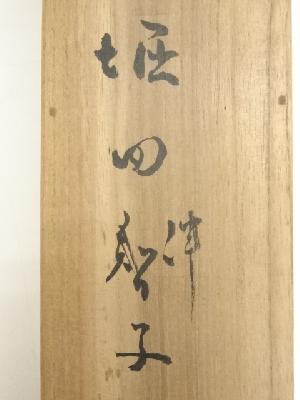 堀田智子
津